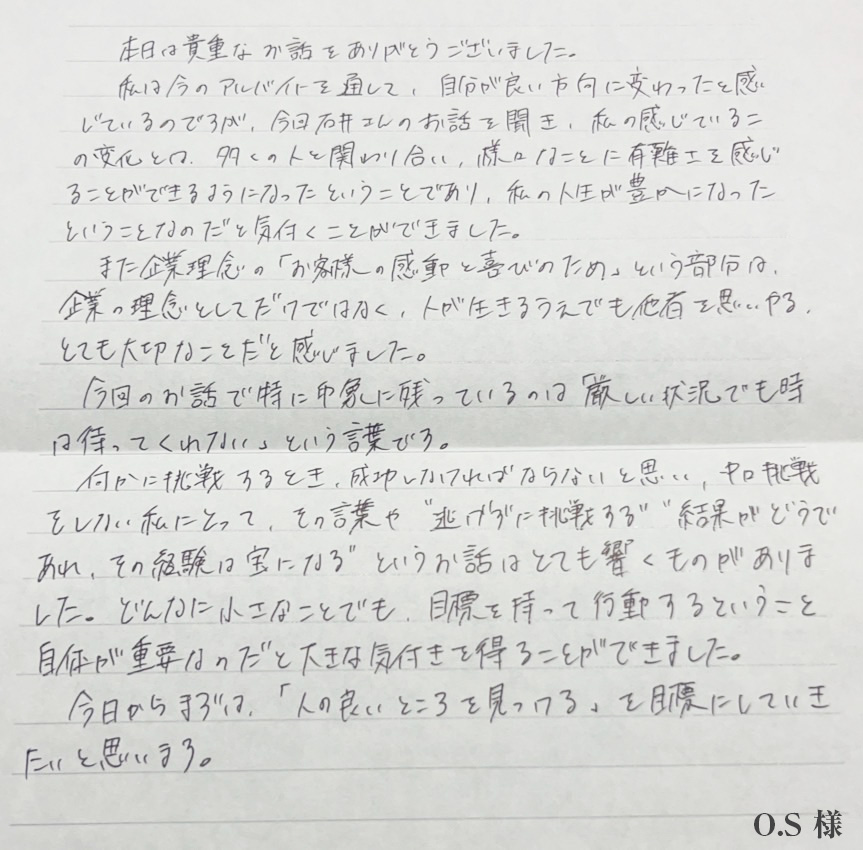 本日は貴重なお話をありがとうございました。
私は今のアルバイトを通して、自分が良い方向に変わったと感
じているのですが、今回石井さんのお話を聞き、私の感じているこ
の変化とは、多くの人と関わり合い、様々なことに有難さを感じ
ることができるようになったということであり、私の人生が豊かになった
ということなのだと気付くことができました。
また企業理念の「お客様の感動と喜びのため」という部分は、
企業の理念としてだけではなく、人が生きるうえでも他者を思いやる、
とても大切なことだと感じました。
今回のお話で特に印象に残っているのは「厳しい状況でも時
は待ってくれない」という言葉です。
何かに挑戦するとき、成功しなければならないと思い、中々挑戦
をしない私にとって、その言葉や"逃げずに挑戦する""結果がどうで
あれ、その経験は宝になる"というお話はとても響くものがありま
した。どんなに小さなことでも、目標を持って行動するということ
自体が重要なのだと大きな気付きを得ることができました。
今日からまずは、「人の良いところを見つける」を目標にしていき
たいと思います。
O.S 様